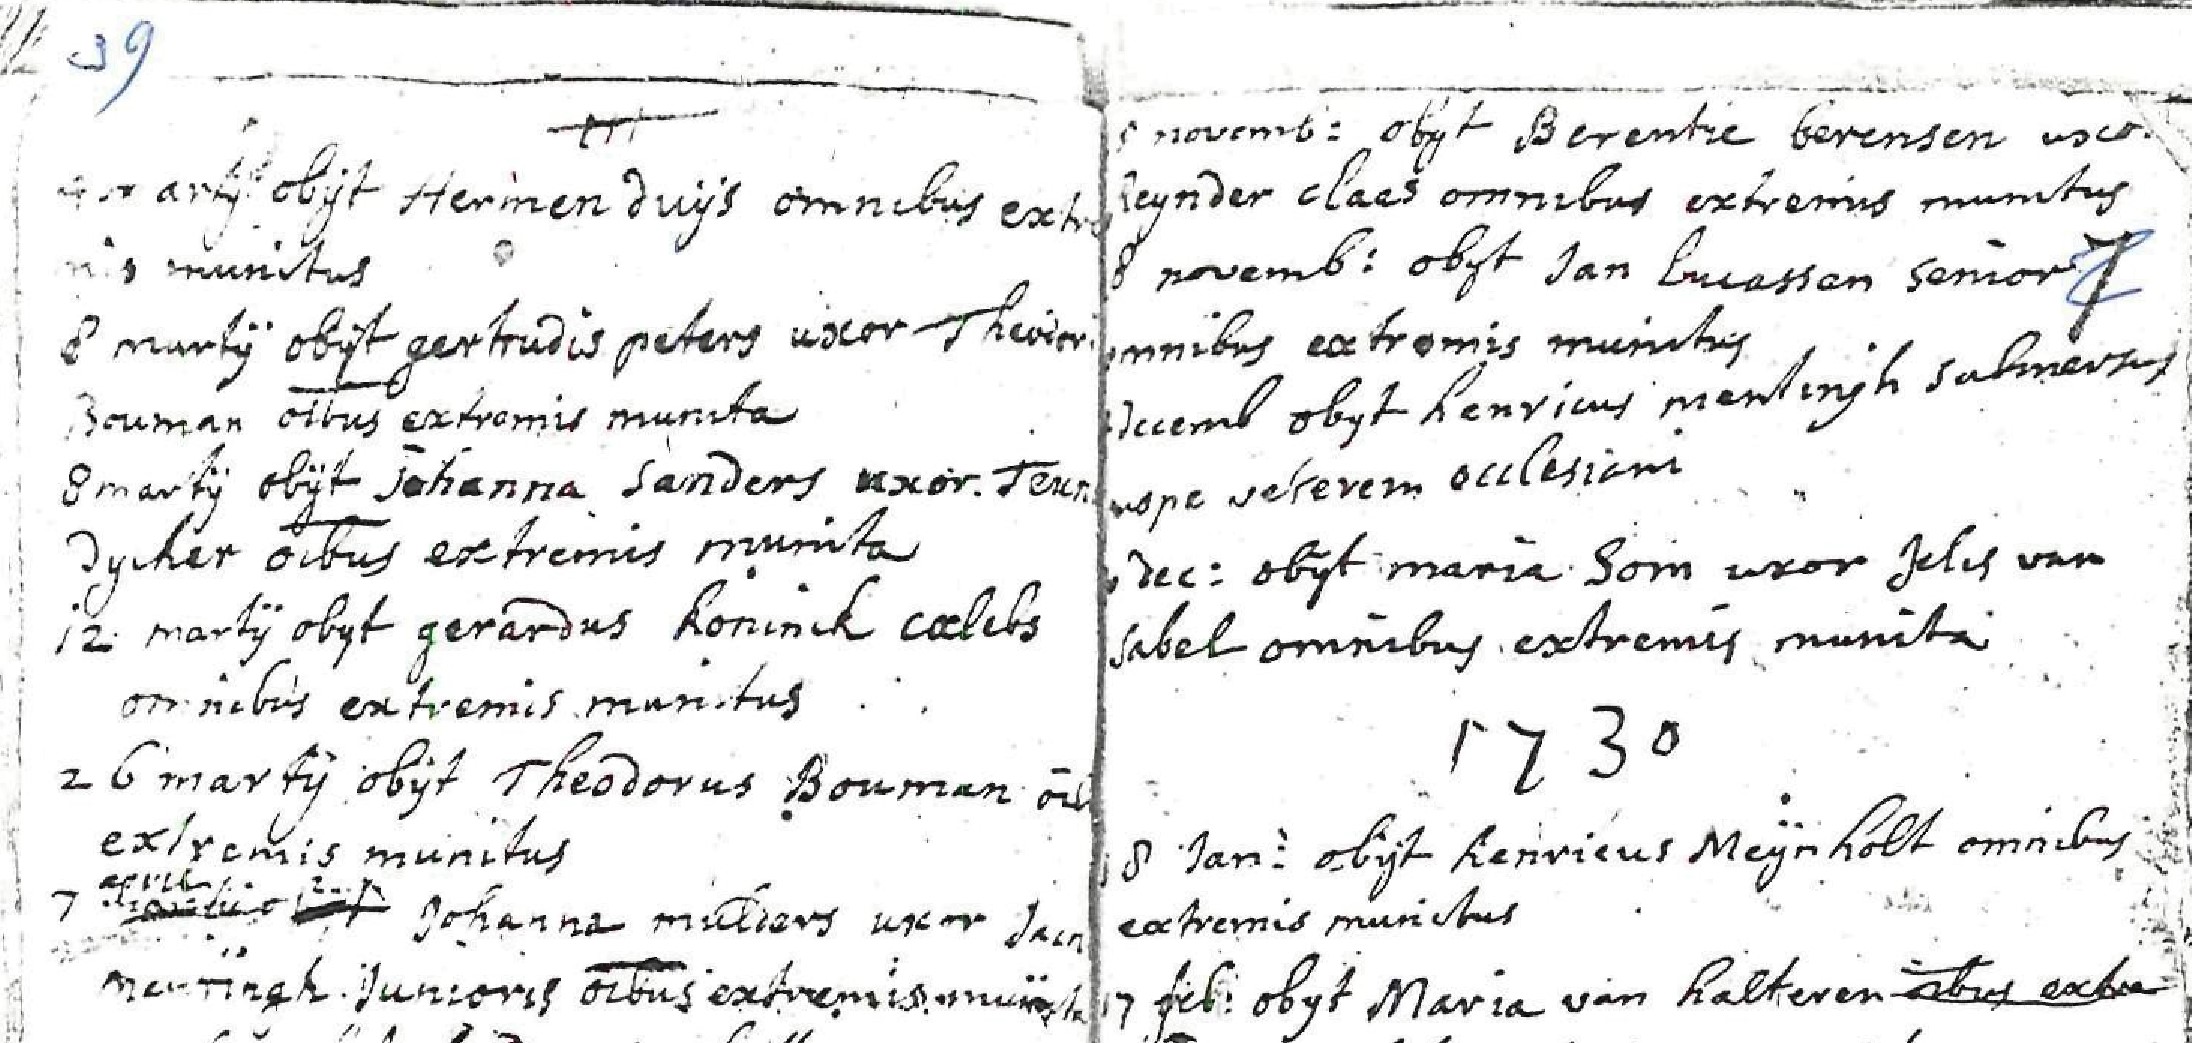 39
martÿ obÿt Hermen duÿs omnibus extre
mis munitus
8 martÿ obÿt gertrudis peters uxor Theodori
Bouman oibus extremis munita
8 martÿ obÿt Johanna Sanders uxor. Teun
dycker oibus extremis munita
12 martÿ obyt gerardus koninck cœlebs
omnibus extremis munitus
26 martÿ obÿt Theodorus Bouman oib
extremis munitus
7 april Johanna mulders uxor Jan
mentingh Junioris oibus extremis munita
novemb: obÿt Berentie berensen uxor
Reynder claes omnibus extremis munitus
8 novemb: obÿt Jan lucassen senior
omnibus extremis munitus
decemb obyt henricus mentingh submersus
prope veterem ecclesiam
dec: obÿt maria Som uxor Jelis van
Sabel omnibus extremis munita
1730
18 Jan: obÿt henricus Meÿnholt omnibus
extremis munitus
17 feb: obyt Maria van halteren oibus extre